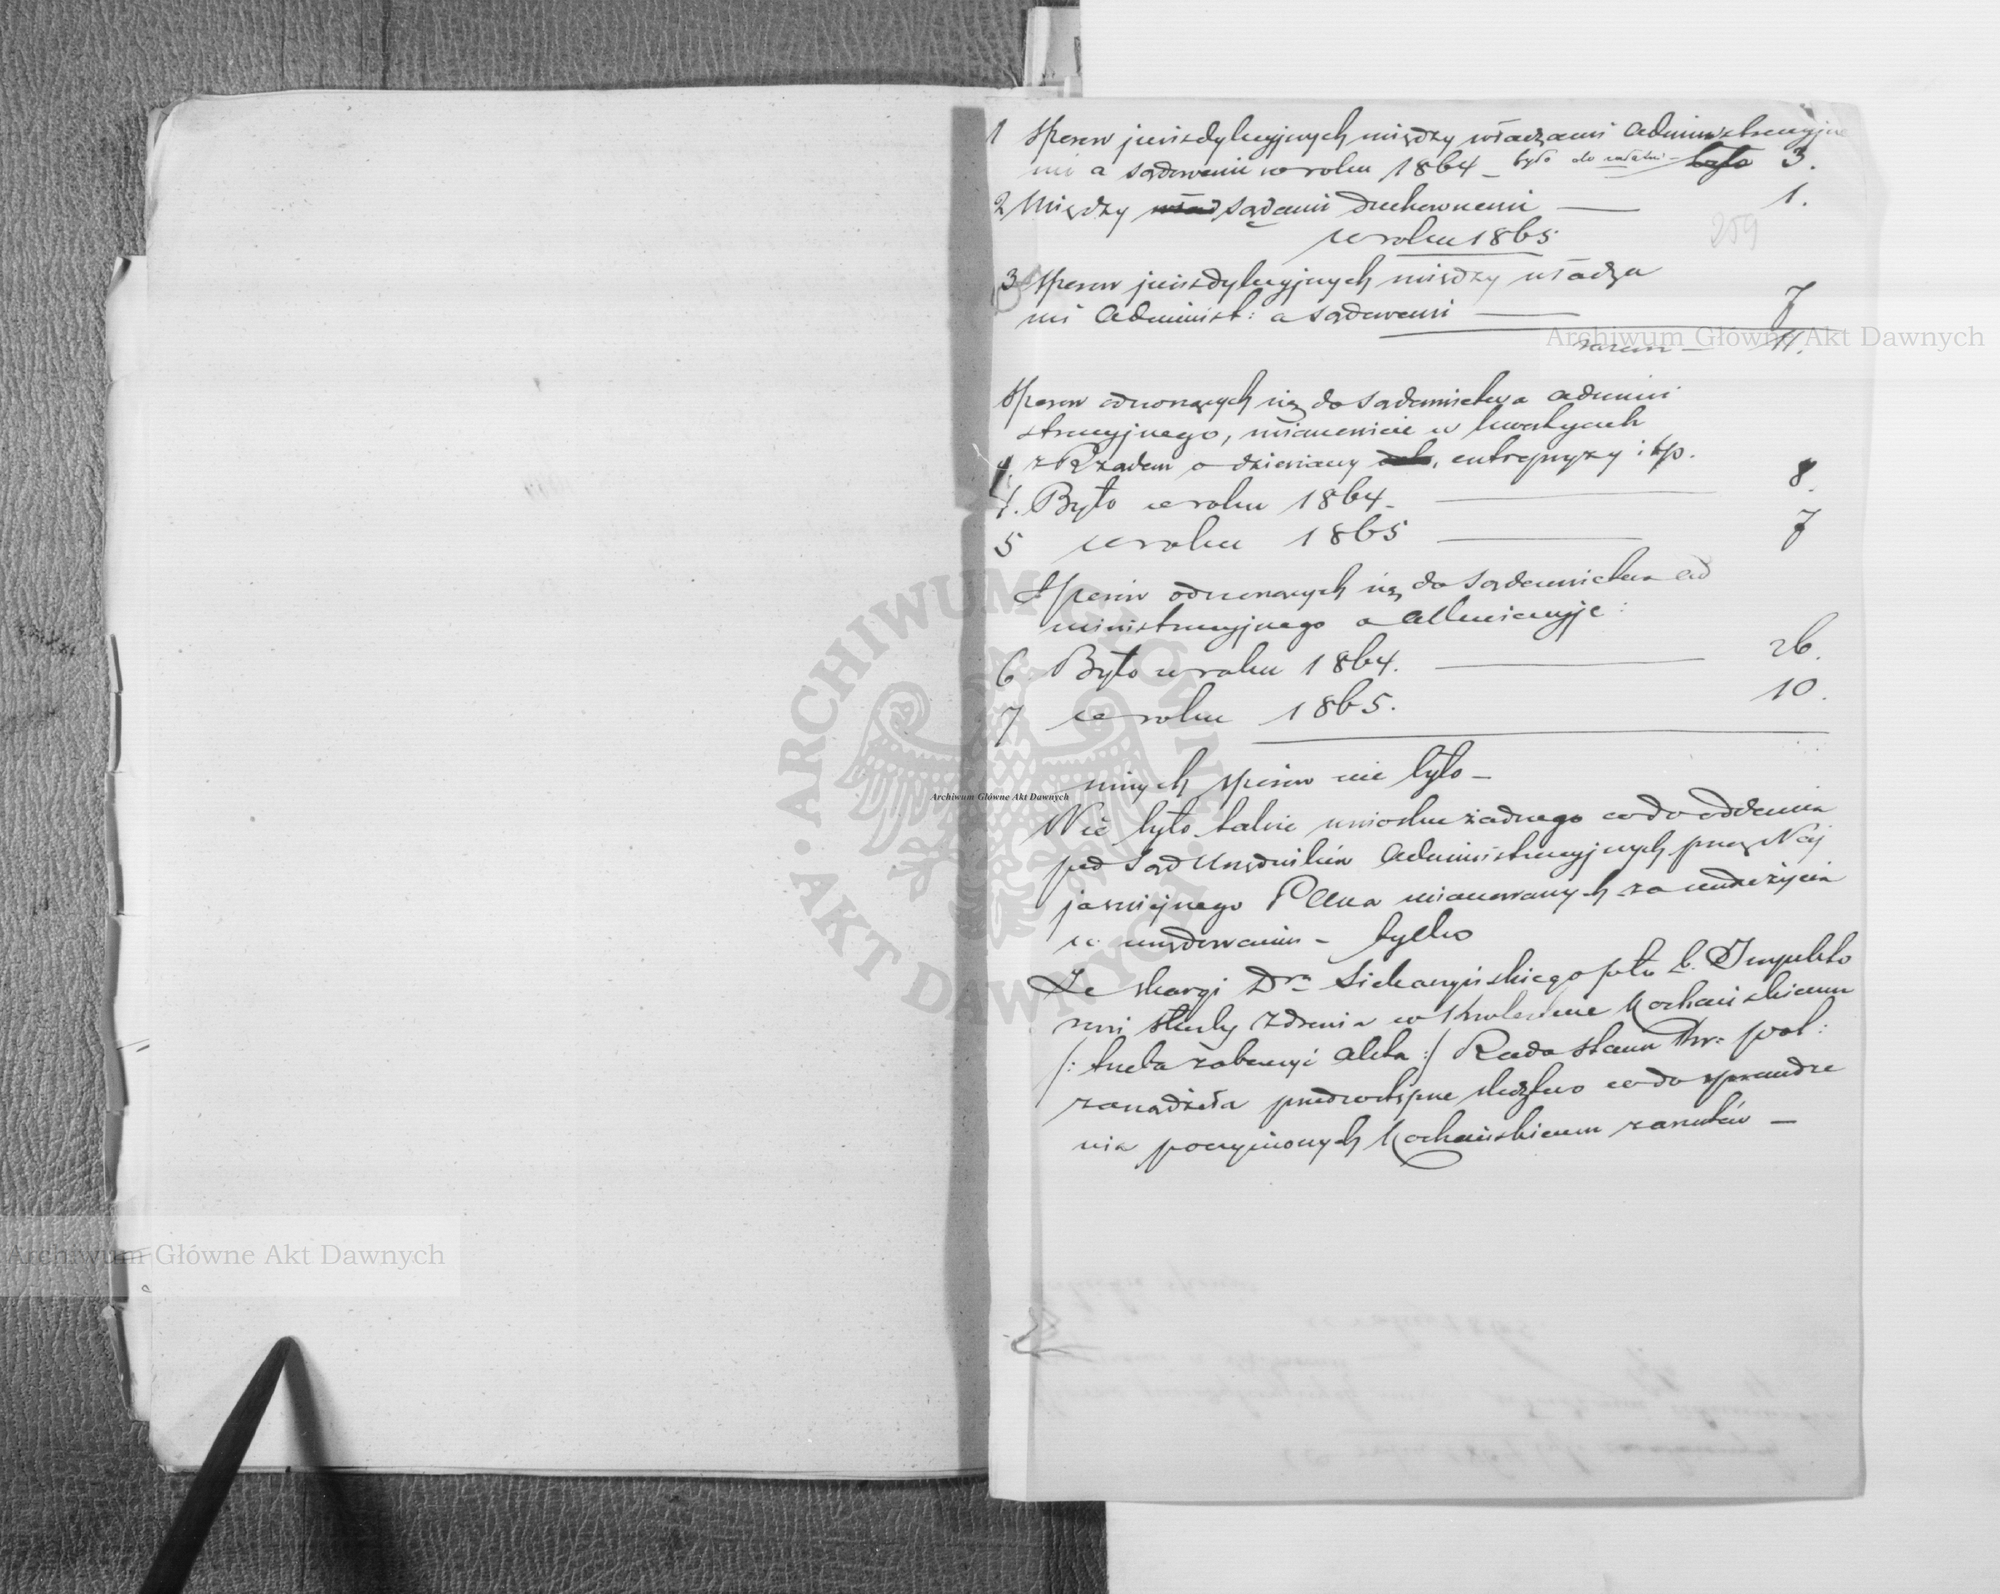 1 Sporów jurisdykcyjnych między władzami Administracyjne
mi a sądowemi w roku 1864 – było do załatw: – było 3.
2 Między sądami duchownemi — 1.
259
w roku 1865
3 Sporów jurisdykcyjnych między władza
mi Administ: a sądowemi — 7
razem – 11.
Sporów odnoszących się do sądownictwa admini
stracyjnego, mianowicie w kwestyach
z Rządem o dzierżawy, entrepryzy i tp.
4. Było w roku 1864 – 8.
5 w roku 1865 — 7
Sporów odnoszących się do sądownictwa ad
ministracyjnego o Alluwicyje:
6 Było w roku 1864. — 26.
7 w roku 1865. 10.
innych sporów nie było –
Nie było także wniosku żadnego co do oddania
pod Sąd Urzędników Administracyjnych przez Naj
jaśniejszego Pana mianowanych za nadużycia
w urzędowaniu – tylko
Ze skargi Dra Siekaczyńskiego pko b. Inspekto
rowi służby zdrowia w Królestwie Kochańskiemu
/: trzeba zobaczyć Akta :/ Rada Stanu Krr: pol:
zarządziła przedwstępne śledztwo co do sprawdze
nia poczynionych Kochańskiemu zarzutów –
Archiwum Główne Akt Dawnych
Archiwum Główne Akt Dawnych
Archiwum Główne Akt Dawnych
ARCHIWUM GŁÓWNE AKT DAWNYCH